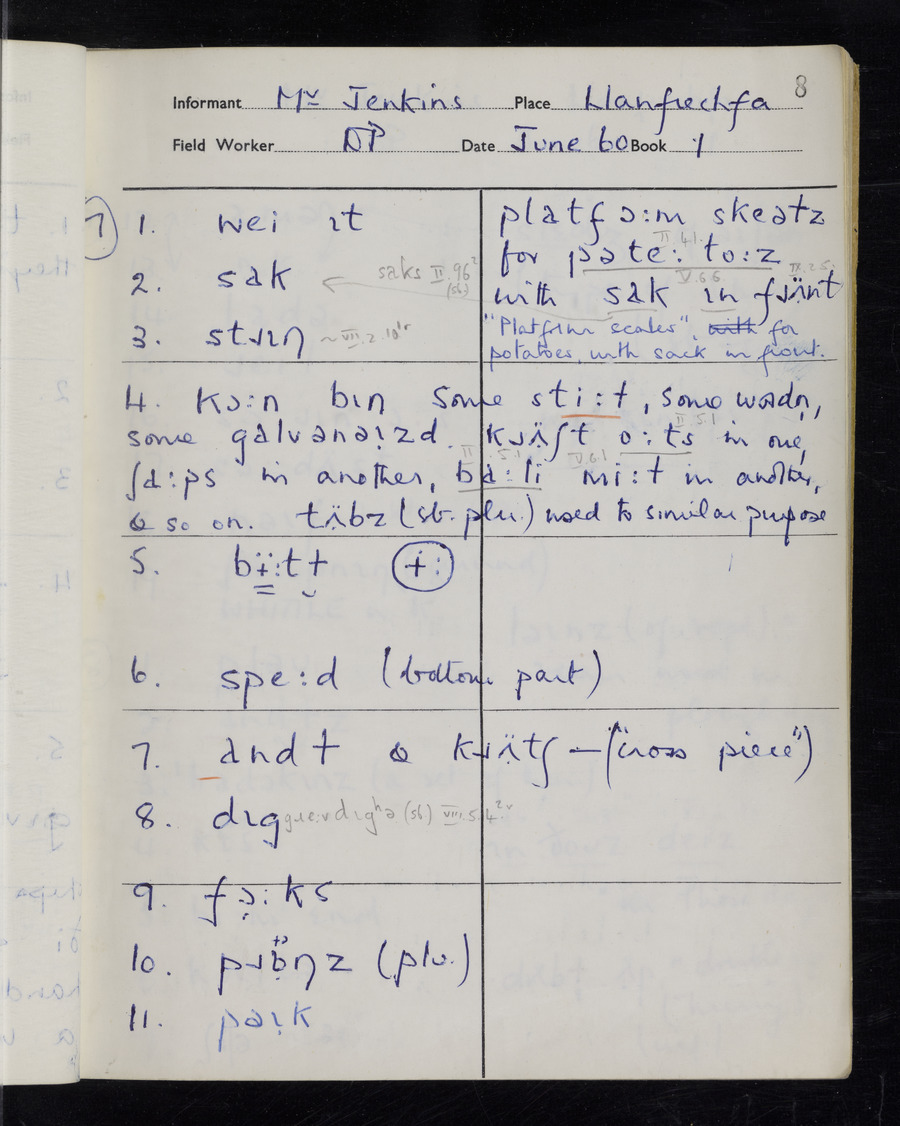 8
Informant Mr Jenkins Place Llanfrechfa
Field Worker DP Date June 60 Book 1
7) 1. wei ɪt
2. sak
saks II.96² (sb)
3. stɹɪŋ ~ VII.2.10
platfɔ:m skeatz
for pəte:to:z II.4.1.
with sak ɪn fɹʌ̈nt V.6.6
"Platform scales", with for
potatoes, with sack in front.
4. Kɔ:n bɪn some sti:t, some wɒdn,
some galvanaɪzd. kɹʌ̈ʃt o:ts in one, II.5.1
ʃa:ps in another, ba:li mi:t in another, II.5.1 V.6.1
& so on. tʌ̈bz (sb. plu.) used to similar purpose
5. bɨ̈:tɫ (ɨ:)
6. spe:d (bottom part)
7. andɫ & kɹʌ̈tʃ – ("cross piece")
8. dɪg gɹe:vdɪgʰə (sb) VIII.5.4
9. fɔ:ks
10. pɹɒŋz (plu.)
11. paɹk